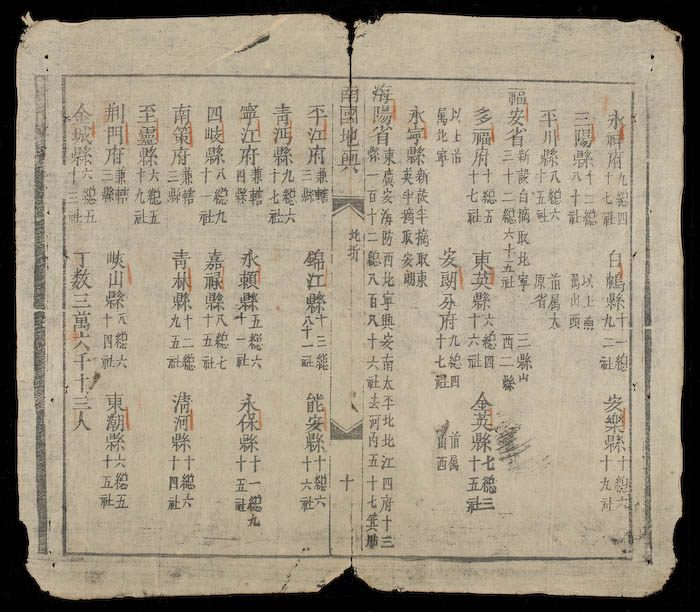 永祥府 九總四十七社 白鶴縣 十一總九十二社 安樂縣 十總六十九社
三陽縣 十二總八十社 以上無属山西
平川縣 八總六十五社 前属太原省
福安省 新設白摘取北寧三縣山西二縣三十二總六十五社
多福府 十總五十七社 東英縣 六總四十六社 金英縣 七總三十五社
以上前属北寧 安朗分府 九總四十七社 前属山西
永寧縣 新設半摘取東英半摘取安朗
海陽省 東廣安海防西北寧興安南太平北北江四府十三縣一百十二總八百八十六社去河内五十七箕
南國地輿 地折 十
平江府 兼轄三縣 錦江縣 十三總八十一社 能安縣 十總六十六社
青沔縣 九總六十七社
寧江府 兼轄四縣 永賴縣 五總六十一社 永保縣 十一總九十五社
四岐縣 八總九十一社 嘉祿縣 八總七十五社
南策府 兼轄三縣 青林縣 十二總九十五社 清河縣 十總四十四社
至靈縣 六總五十九社
荆門府 兼轄三縣 峽山縣 八總六十四社 東潮縣 六總五十五社
金城縣 六總五十三社 丁数三萬六千十三人